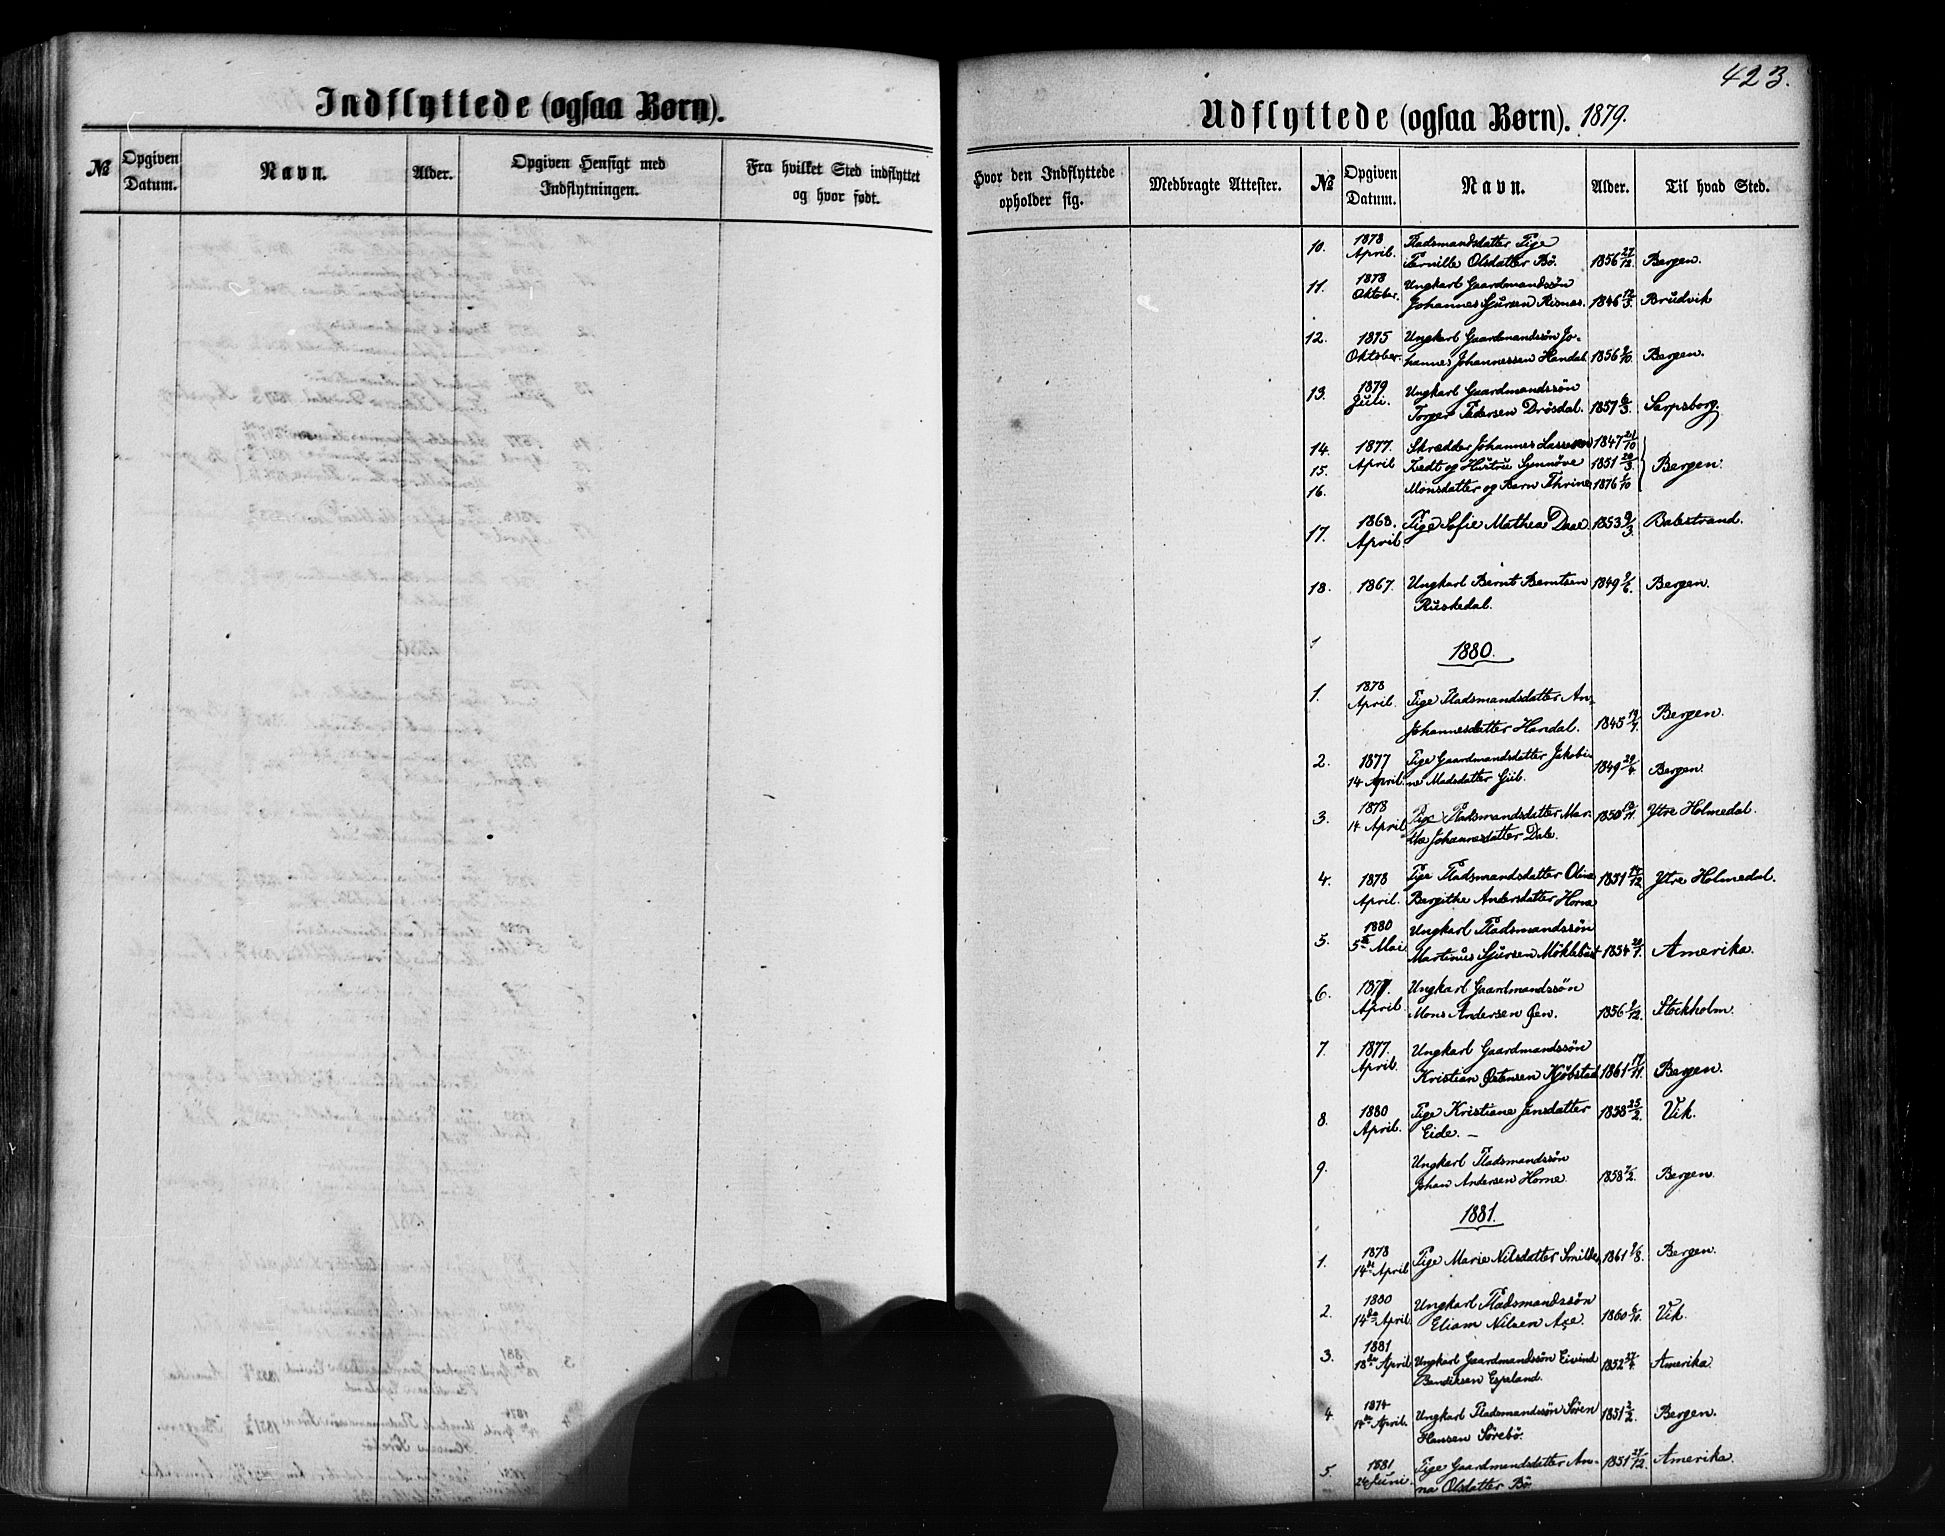 423.
Indflyttede (ogsaa Børn).
№ Opgiven Datum. Navn. Alder. Opgiven Hensigt med Indflytningen. Fra hvilket Sted indflyttet og hvor født.
Udflyttede (ogsaa Børn). 1879.
Hvor den Indflyttede opholder sig. Medbragte Attester. № Opgiven Datum. Navn. Alder. Til hvad Sted.
10. 1878 Pladsmandsdatter Pige
April. Pernille Olsdatter Bö. 1856 27/12. Bergen.
11. 1878 Ungkarl Gaardmandssön
Oktober. Johannes Sjursen Risnes. 1846 12/3. Brudvik
12. 1875 Ungkarl Gaardmandssön Jo-
Oktober. hannes Johannessen Handal. 1856 9/10. Bergen.
13. 1879 Ungkarl Gaardmandssön
Juli. Torger Pedersen Drösdal. 1857 6/3. Sarpsborg.
14. 1877. Skrædder Johannes Lassesen 1847 24/10
15. April Tvedt og Hustru Synnöve 1851 20/3 Bergen.
16. Monsdatter og Barn Thrine 1876 1/10
17. 1868. Pige Sofie Mathea Daae. 1853 9/3. Balestrand.
April
18. 1867. Ungkarl Bernt Berntsen 1849 9/6. Bergen.
Ruskedal.
1880.
1. 1878 Pige Pladsmandsdatter An-
April. Johannesdatter Handal. 1845 19/7. Bergen.
2. 1877 Pige Gaardmandsdatter Jakobi-
14 April. ne Madsdatter Giil. 1849 29/4. Bergen.
3. 1878 Pige Pladsmandsdatter Mar- 1850 12/11. Ytre Holmedal.
14 April the Johannesdatter Dale.
4. 1878 Pige Pladsmandsdatter Oline 1851 14/12 Ytre Holmedal.
April. Bergithe Andersdatter Horne
5. 1880 Ungkarl Pladsmandssön
5te Mai Martinus Sjursen Möklebust 1854 20/7. Amerika.
6. 1877. Ungkarl Gaardmandssön
April. Mons Andersen Øen. 1856 9/12. Stockholm.
7. 1877. Ungkarl Gaardmandssön
April. Kristian Østensen Kjöbstad 1861 17/11. Bergen.
8. 1880 Pige Kristiane Jensdatter 1858 25/2. Vik.
April. Eide. –
9. Ungkarl Pladsmandssön
Johan Andersen Horne. 1858 7/2. Bergen.
1881.
1. 1878 Pige Marie Nilsdatter Smilde 1861 9/8. Bergen.
14de April
2. 1880 Ungkarl Pladsmandssön
14de April Eliam Nilsen Axe. 1860 6/10. Vik.
3. 1881
18de April Ungkarl Gaardmandssön Eivind 1852 27/4. Amerika.
Bendiksen Espeland.
4 1874 Ungkarl Pladsmandssön Sören 1851 3/2. Bergen.
14de April. Hansen Sörebö.
5. 1881 Pige Gaardmandsdatter An- 1851 27/12. Amerika.
24 Juni. na Olsdatter Bö